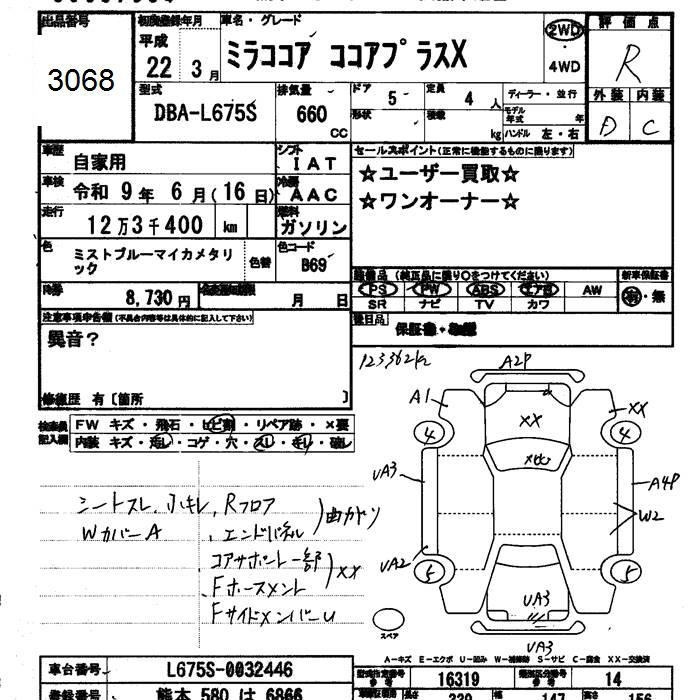 出品番号
3068
初度登録年月
平成
22 3月
車名・グレード
ミラココア ココアプラスX
2WD
・
4WD
評価点
R
外装 内装
D C
型式
DBA-L675S
排気量
660
CC
ドア
5
形状
定員
4 人
積載
kg
ディーラー・並行
モデル年式 年
ハンドル 左・右
車歴
自家用
シフト
IAT
セールスポイント(正常に機能するものに限ります)
☆ユーザー買取☆
☆ワンオーナー☆
車検
令和 9年 6月(16日)
冷房
AAC
走行
12万3千400 km
燃料
ガソリン
色
ミストブルーマイカメタリ
ック
色替
色コード
B69
装備品 (純正品に限り○をつけてください)
PS PW ABS エアB AW
SR ナビ TV カワ
新車保証書
有・無
R券
8,730円
月 日
後日品
保証書・
注意事項申告欄(不具合内容等は具体的に記入して下さい)
異音?
修復歴 有〔箇所 〕
検査員
記入欄
FW キズ・飛石・ヒビ割・リペア跡・×要
内装 キズ・汚レ・コゲ・穴・スレ・キレ・破レ
123362km
A2P
A1
XX
XX
4
4
UA3
A4P
W2
UA2
5
5
UA3
スペア
UA3
シートスレ、小キレ、Rフロア
WカバーA
、エンドパネル
曲がり
コアサポート一部
XX
Fホースメント
FサイドメンバーU
A-キズ E-エクボ U-凹み W-補修跡 S-サビ C-腐食 XX-交換済
車台番号
L675S-0032446
型式指定番号
16319
類別区分番号
14
登録番号
熊本 580 は 6866
長さ
339
147
156